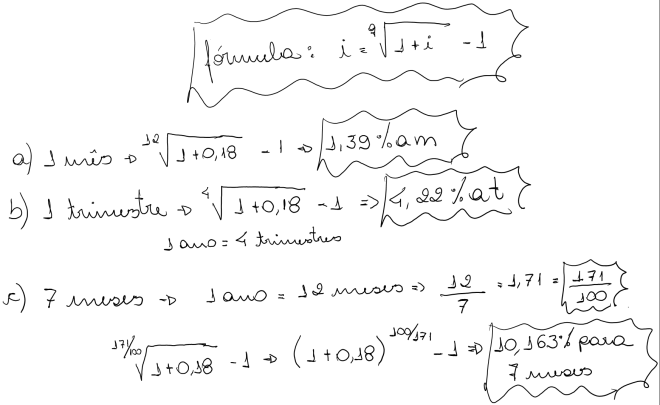 fórmula: i = ᑫ√1+i - 1
a) 1 mês → ¹²√1+0,18 - 1 ⇒ 1,39% am
b) 1 trimestre → ⁴√1+0,18 - 1 ⇒ 4,22% at
1 ano = 4 trimestres
c) 7 meses → 1 ano = 12 meses ⇒ 12/7 = 1,71 = 171/100
171/100√1+0,18 - 1 → (1+0,18)^100/171 - 1 ⇒ 10,163% para
7 meses